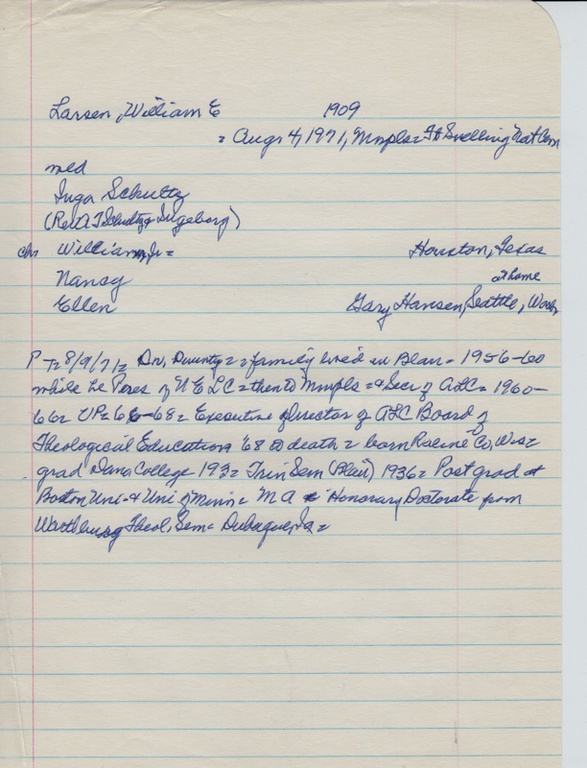 Larsen, William E 1909
= Aug 4, 1971, Mnpls = Ft Snelling Nat Cem
med
Inga Schultz
(Rev A T Schultz & Ingeborg)
chn William Jr = Houston, Texas
Nancy at home
Ellen Gary Hansen, Seattle, Wash
P-T= 8/9/71= Dr, = family lived in Blair = 1956-60
while he Pres of U E L C = then to Mnpls = & Secr of ALC = 1960-
66= VP= 66-68= Executive Director of ALC Board of
Theological Education '68 @ death = born Racine Co, Wis=
grad Dana College 193= Trin Sem (Blair) 1936= Post grad at
Boston Uni & Uni of Minn = MA Honorary Doctorate from
Wartburg Theol, Sem = Dubuque, Ia =